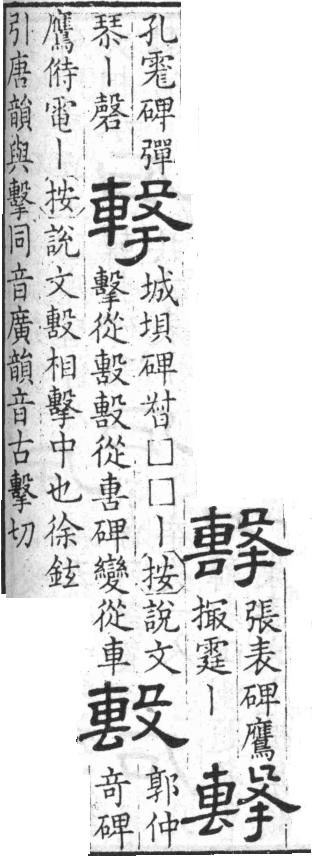 擊
張表碑鷹
撮霆丨
擊
孔碑彈
琹丨磬
擊
城垻碑朁□□丨按說文
擊從毄毄從軎碑變從車
毄
郭仲
奇碑
鷹偫電丨按說文毄相擊中也徐鉉
引唐韻與擊同音廣韻音古擊切